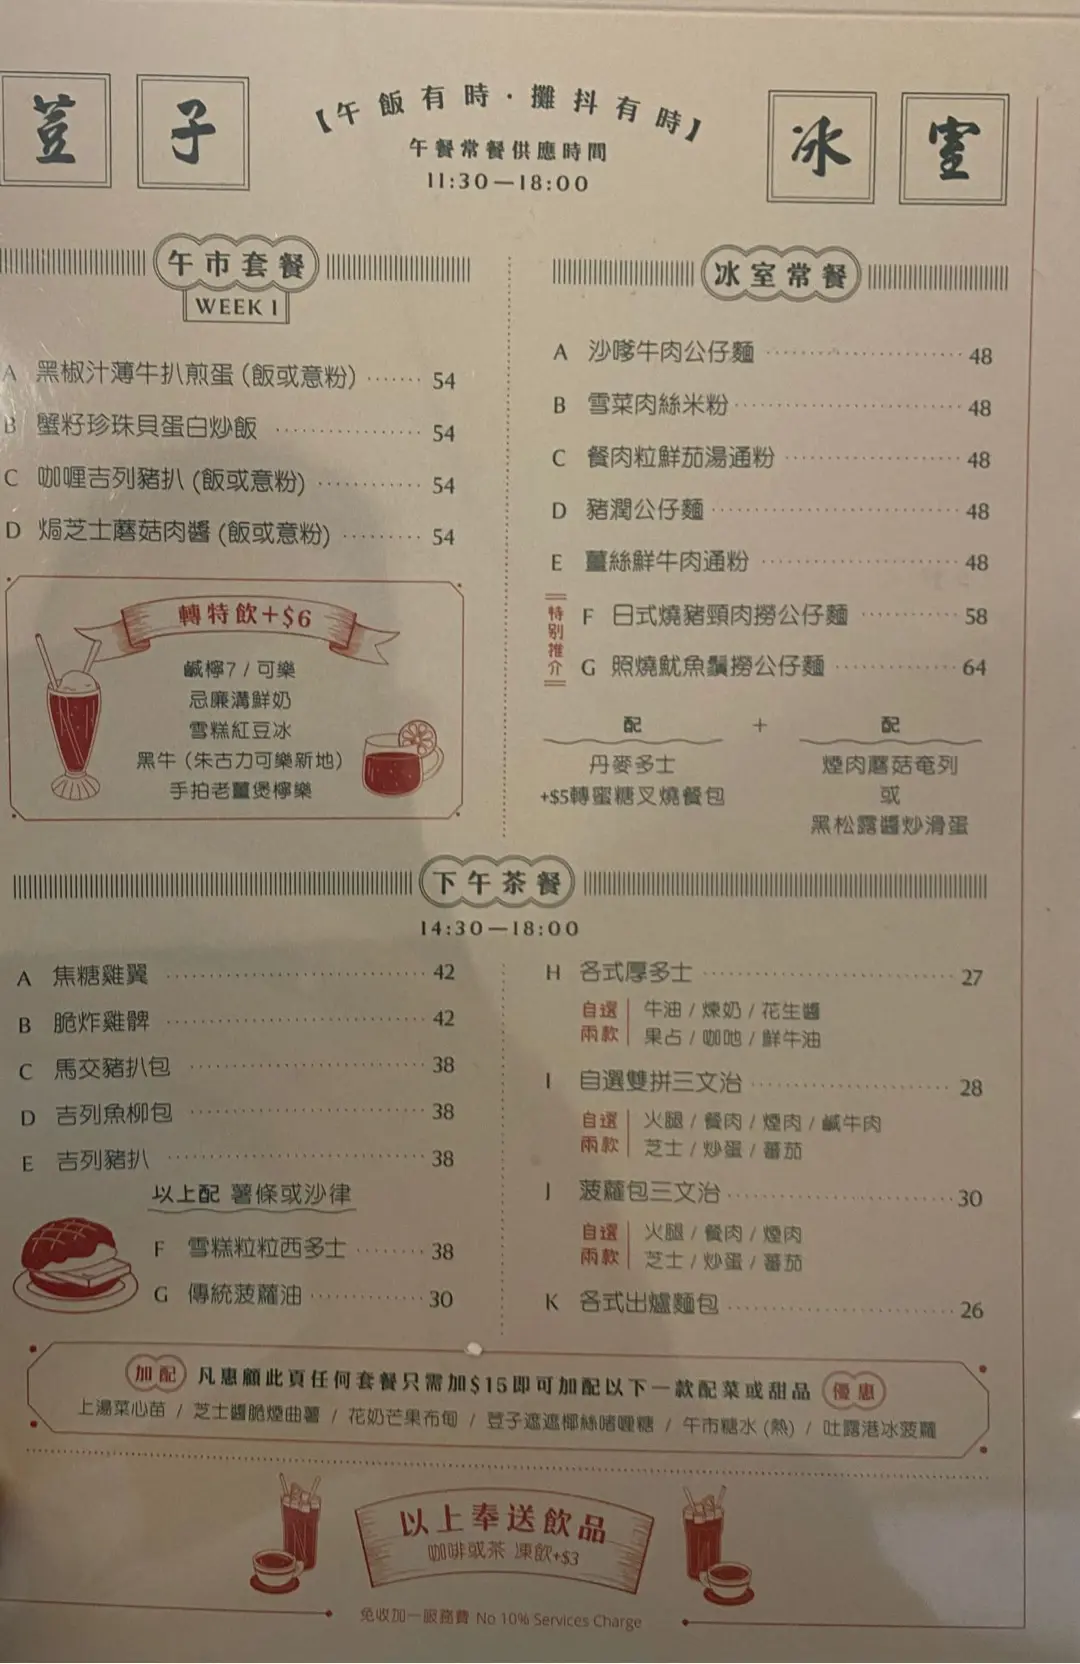 荳子冰室
【午飯有時·攤抖有時】
午餐常餐供應時間
11:30—18:00
午市套餐
WEEK 1
A 黑椒汁薄牛扒煎蛋 (飯或意粉) 54
B 蟹籽珍珠貝蛋白炒飯 54
C 咖喱吉列豬扒 (飯或意粉) 54
D 焗芝士蘑菇肉醬 (飯或意粉) 54
轉特飲+$6
鹹檸7 / 可樂
忌廉溝鮮奶
雪糕紅豆冰
黑牛 (朱古力可樂新地)
手拍老薑煲檸樂
冰室常餐
A 沙嗲牛肉公仔麵 48
B 雪菜肉絲米粉 48
C 餐肉粒鮮茄湯通粉 48
D 豬潤公仔麵 48
E 薑絲鮮牛肉通粉 48
特別推介
F 日式燒豬頸肉撈公仔麵 58
G 照燒魷魚鬚撈公仔麵 64
配 + 配
丹麥多士
+$5轉蜜糖叉燒餐包
煙肉蘑菇奄列
或
黑松露醬炒滑蛋
下午茶餐
14:30—18:00
A 焦糖雞翼 42
B 脆炸雞髀 42
C 馬交豬扒包 38
D 吉列魚柳包 38
E 吉列豬扒 38
以上配 薯條或沙律
F 雪糕粒粒西多士 38
G 傳統菠蘿油 30
H 各式厚多士 27
自選 牛油 / 煉奶 / 花生醬
兩款 果占 / 咖吔 / 鮮牛油
I 自選雙拼三文治 28
自選 火腿 / 餐肉 / 煙肉 / 鹹牛肉
兩款 芝士 / 炒蛋 / 蕃茄
J 菠蘿包三文治 30
自選 火腿 / 餐肉 / 煙肉
兩款 芝士 / 炒蛋 / 蕃茄
K 各式出爐麵包 26
加配 凡惠顧此頁任何套餐只需加$15即可加配以下一款配菜或甜品 優惠
上湯菜心苗 / 芝士醬脆煙曲薯 / 花奶芒果布甸 / 荳子遮遮椰絲啫喱糖 / 午市糖水 (熱) / 吐露港冰菠蘿
以上奉送飲品
咖啡或茶 凍飲+$3
免收加一服務費 No 10% Services Charge